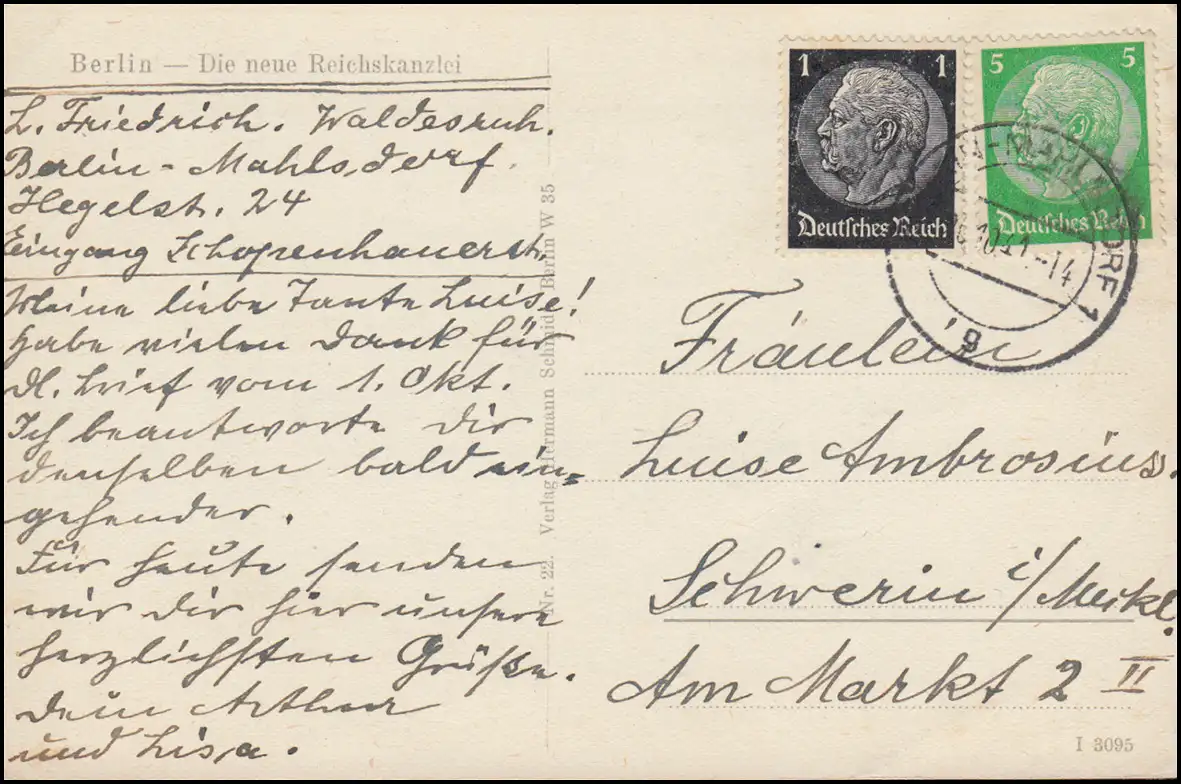 Berlin — Die neue Reichskanzlei
L. Friedrich. Waldesruh.
Berlin-Mahlsdorf.
Hegelstr. 24
Eingang Schopenhauerstr.
Meine liebe Tante Luise!
Habe vielen Dank für
dl. Brief vom 1. Okt.
Ich beantworte Dir
denselben bald ein=
gehender.
Für heute senden
wir Dir hier unsere
herzlichsten Grüße.
Dein Arthur
und Lisa.
Nr. 22. Verlag Hermann Schmidt Berlin W 35
1 1
Deutsches Reich
5 5
Deutsches Reich
Fräulein
Luise Ambrosius.
Schwerin i/Meckl.
Am Markt 2 II
I 3095